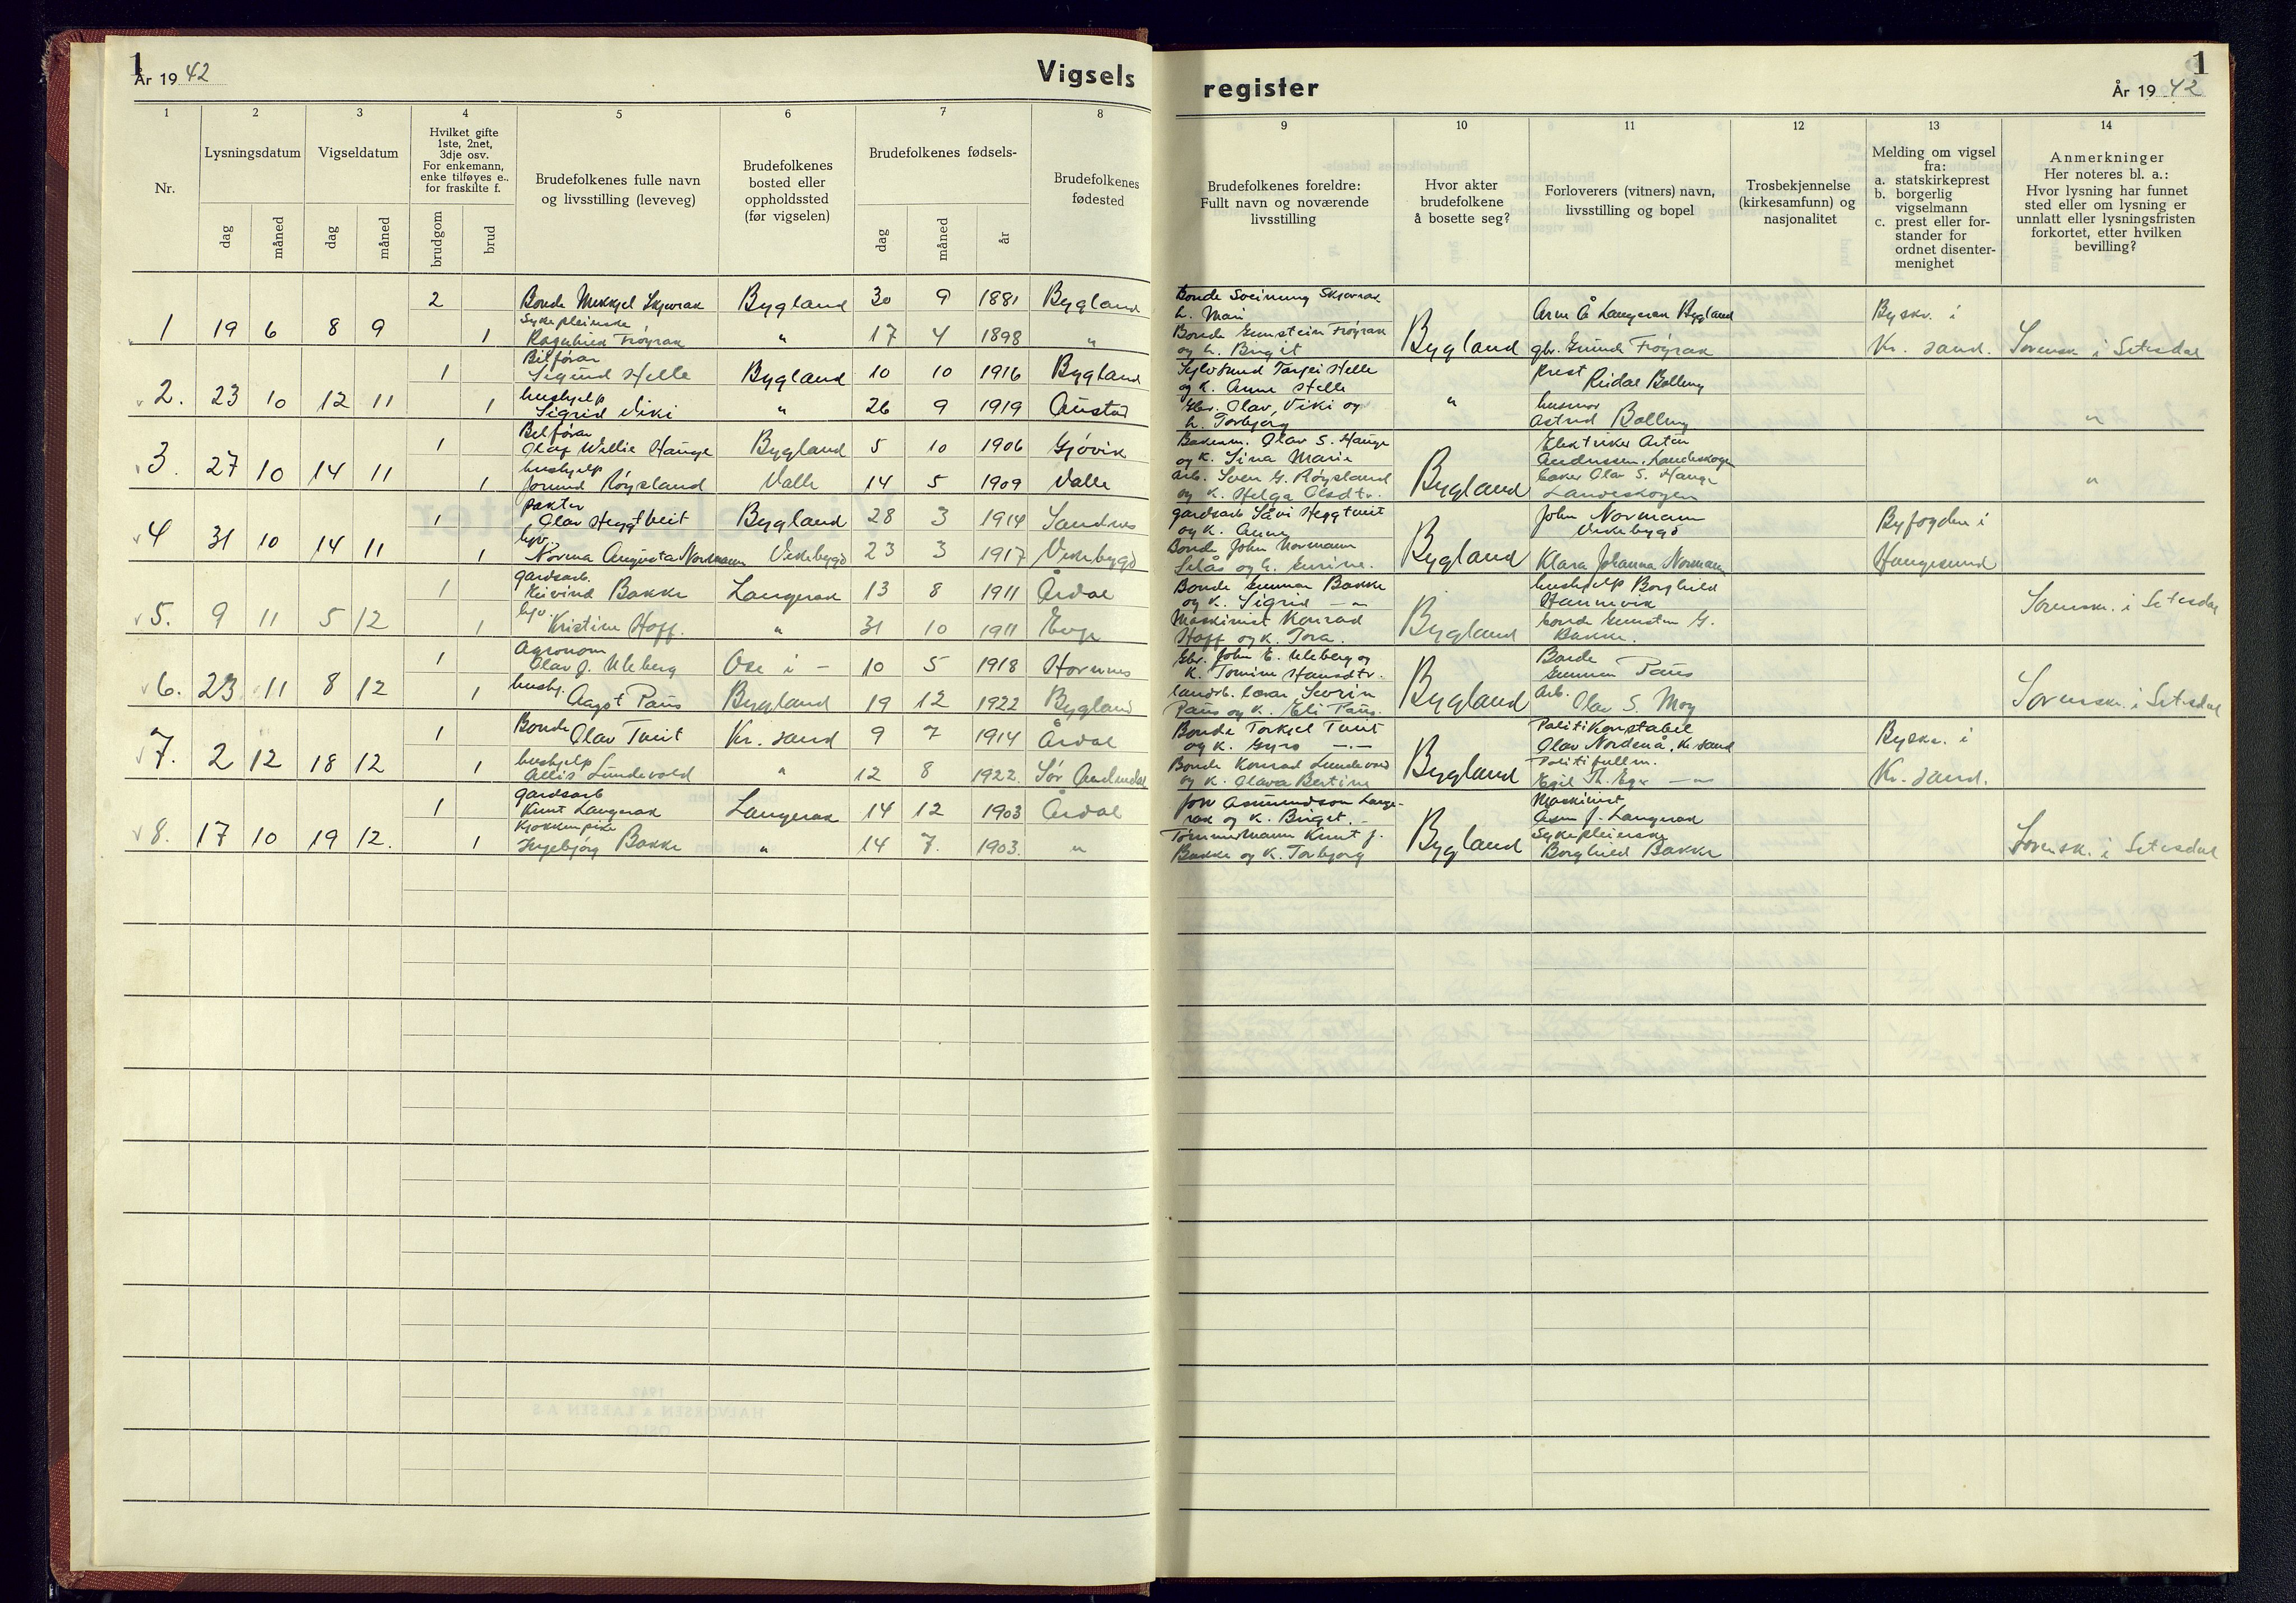 1
År 1942
Vigsels
1 2 3 4 5 6 7 8
Nr.
Lysningsdatum
Vigseldatum
Hvilket gifte
1ste, 2net,
3dje osv.
For enkemann,
enke tilføyes e..
for fraskilte f.
Brudefolkenes fulle navn
og livsstilling (leveveg)
Brudefolkenes
bosted eller
oppholdssted
(før vigselen)
Brudefolkenes fødsels-
Brudefolkenes
fødested
dag måned dag måned brudgom brud dag måned år
2 Bonde Mikkjel Skjevrak Bygland 30 9 1881 Bygland
1 19 6 8 9
Sykepleierske
1 Ragnhild Frøyrak " 17 4 1898 "
Bilførar
1 Sigurd Helle Bygland 10 10 1916 Bygland
2. 23 10 12 11
hushjelp
1 Sigrid Viki " 26 9 1919 Austad
Bilførar
1 Olaf Willie Hauge Bygland 5 10 1906 Gjøvik
3. 27 10 14 11
hushjelp
1 Jorund Røysland Valle 14 5 1909 Valle
pakter
1 Olav Heggtveit Bygland 28 3 1914 Sandnes
4 31 10 14 11
1 Norma Augusta Nordmann Vikebygd 23 3 1917 Vikebygd
gardsarb.
1 Eivind Bakke Langerak 13 8 1911 Årdal
5. 9 11 5 12
1 Kristine Hoff. " 31 10 1911 Evje
Agronom
1 Olav J. Uleberg Ose i - 10 5 1918 Hornnes
6. 23 11 8 12
hushj.
1 Aagot Paus Bygland 19 12 1922 Bygland
1 Bonde Olav Tveit Kr. sand 9 7 1914 Årdal
7. 2 12 18 12
hushjelp
1 Allis Lundevold " 12 8 1922. Sør Audnedal
gardsarb
1 Knut Langerak Langerak 14 12 1903 Årdal
8. 17 10 19 12.
Kjøkkenpike
1 Ingebjørg Bakke " 14 7. 1903. "
1
register
År 1942
9 10 11 12 13 14
Brudefolkenes foreldre:
Fullt navn og noværende
livsstilling
Hvor akter
brudefolkene
å bosette seg?
Forloverers (vitners) navn,
livsstilling og bopel
Trosbekjennelse
(kirkesamfunn) og
nasjonalitet
Melding om vigsel
fra:
a. statskirkeprest
b. borgerlig
vigselmann
c. prest eller for-
stander for
ordnet disenter-
menighet
Anmerkninger
Her noteres bl. a.:
Hvor lysning har funnet
sted eller om lysning er
unnlatt eller lysningsfristen
forkortet, etter hvilken
bevilling?
Bonde Sveinung Skjevrak
h. Mari
Bonde Gunstein Frøyrak
og h. Birgit
Bygland
Arne Å Langerak Bygland
gbr. Gunde Frøyrak
Byskr. i
Kr. sand.
Sorensk. i Setesdal
Sylvsmed Tarjei Helle
og k. Anne Helle
Gbr. Olav Viki og
h. Torbjørg
"
Prest
Reidar Bolling
husmor
Astrid Bolling
"
Bakerm. Olav S. Hauge
og k. Sina Marie
Arb. Sven G. Røysland
og k. Helga Olsdtr.
Bygland
Elektriker Arten
Andressen, Landeskogen
baker Olav S. Hauge
Landeskogen
"
gardsarb Såvi Heggtveit
og k. Anne
Bonde John Normann
Selås og h. Gurine.
Bygland
John Normann
Vikebygd
Klara Johanna Normann
Byfogden i
Haugesund
Bonde Gunnar Bakke
og k. Sigrid - " -
Maskinist Konrad
Hoff og k. Tora.
Bygland
hushjelp Borghild
Hannevik
bonde Gunstein G.
Bakke.
Sorenskr. i Setesdal
Gbr. John E. Uleberg og
k. Tomine Hansdtr.
landb. lærar Severin
Paus og k. Eli Paus.
Bygland
Bonde
Gunnar Paus
Arb.
Olav S. Moy
Sorenskr. i Setesdal
Bonde Torkjel Tveit
og k. Gyro - " -
Bonde Konrad Lundevold
og k. Olava Bertine
Bygland
Politikonstabel
Olav Nordenå, Kr. sand
Politifullm.
Egil Th. Ege - " -
Byskr. i
Kr. sand.
Jon Asmundson Lange-
rak og k. Birget. -
Tømmermann Knut J.
Bakke og k. Torbjørg
Bygland
Maskinist
Asm J. Langerak
Sykepleierske
Borghild Bakke
Sorensk. i Setesdal